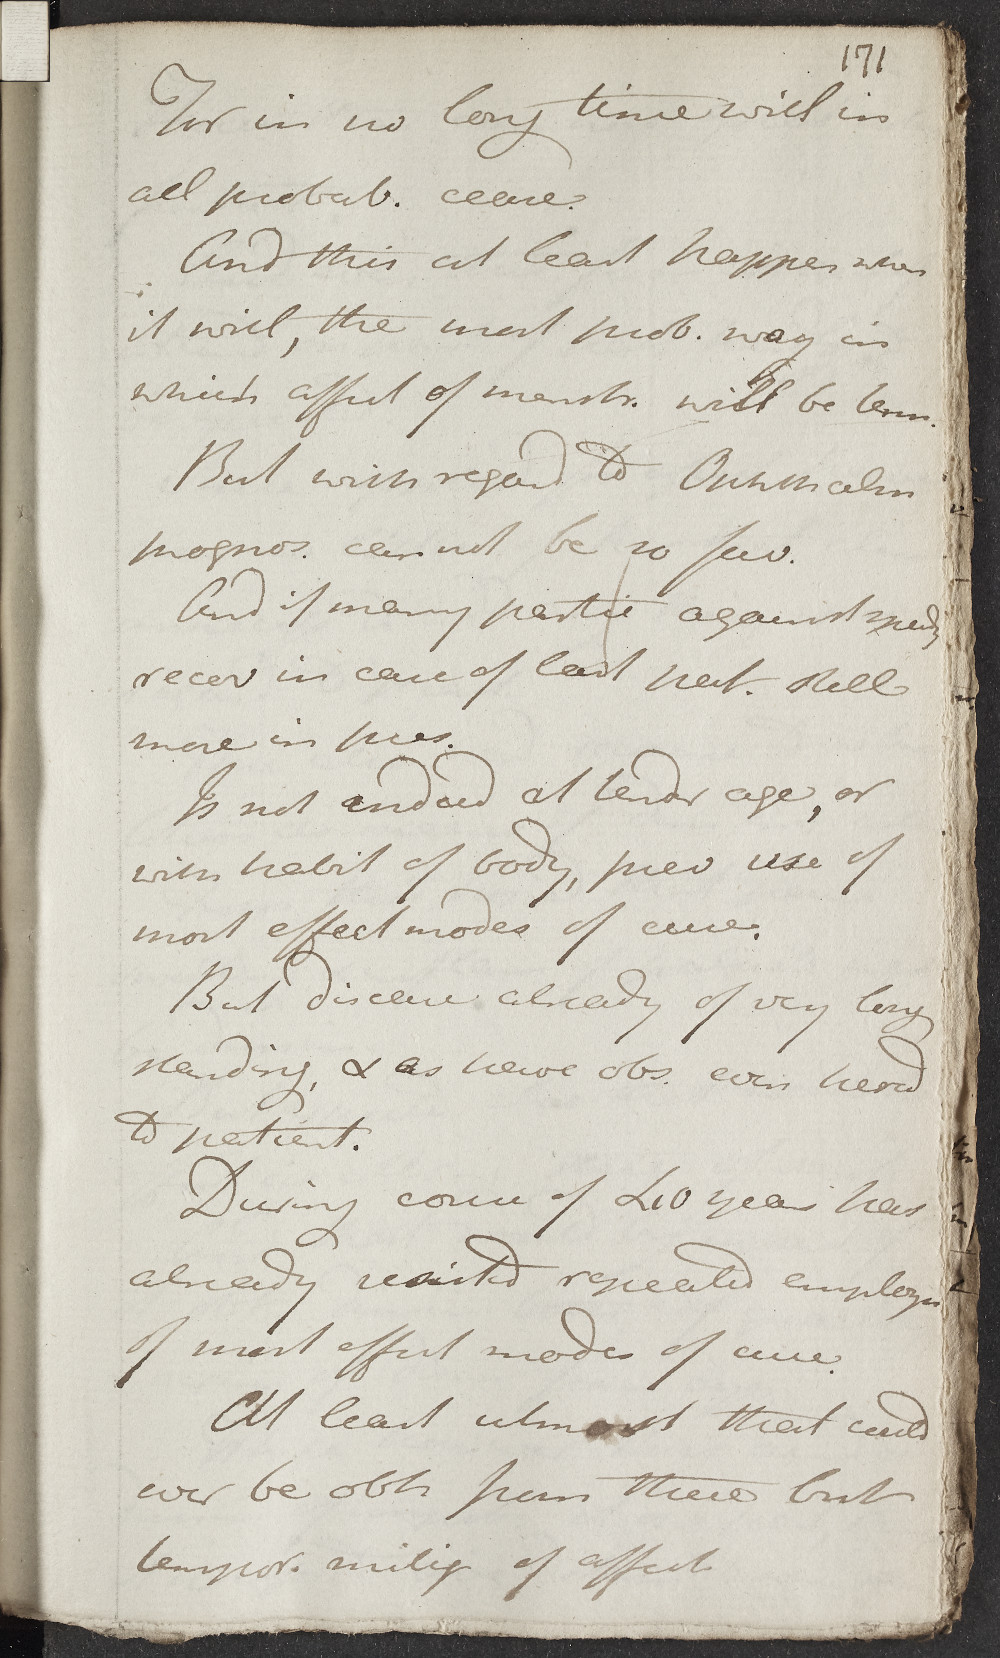 171
For in no long time will in
all probab. cease.
And this at least happen when
it will, the most prob. way in
which affect of menstr. will be term.
But with regard to Ophthalm
prognos. cannot be so fav.
And if many partic against speedy
recov in case of last pat. still
more in pres.
Is not indeed at tender age, or
with habit of body, prev use of
most effect modes of cure.
But disease already of very long
standing, & as have obs. even hered
to patient.
During course of 10 years has
already resisted repeated employm
of most effect modes of cure.
At least utmost that could
ever be obtn from these but
tempor. mitig of affect